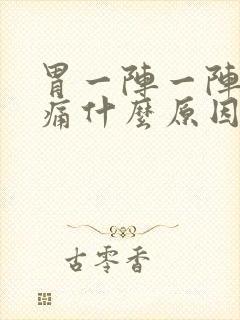 胃一陣一陣
痛什麼原因
古零香